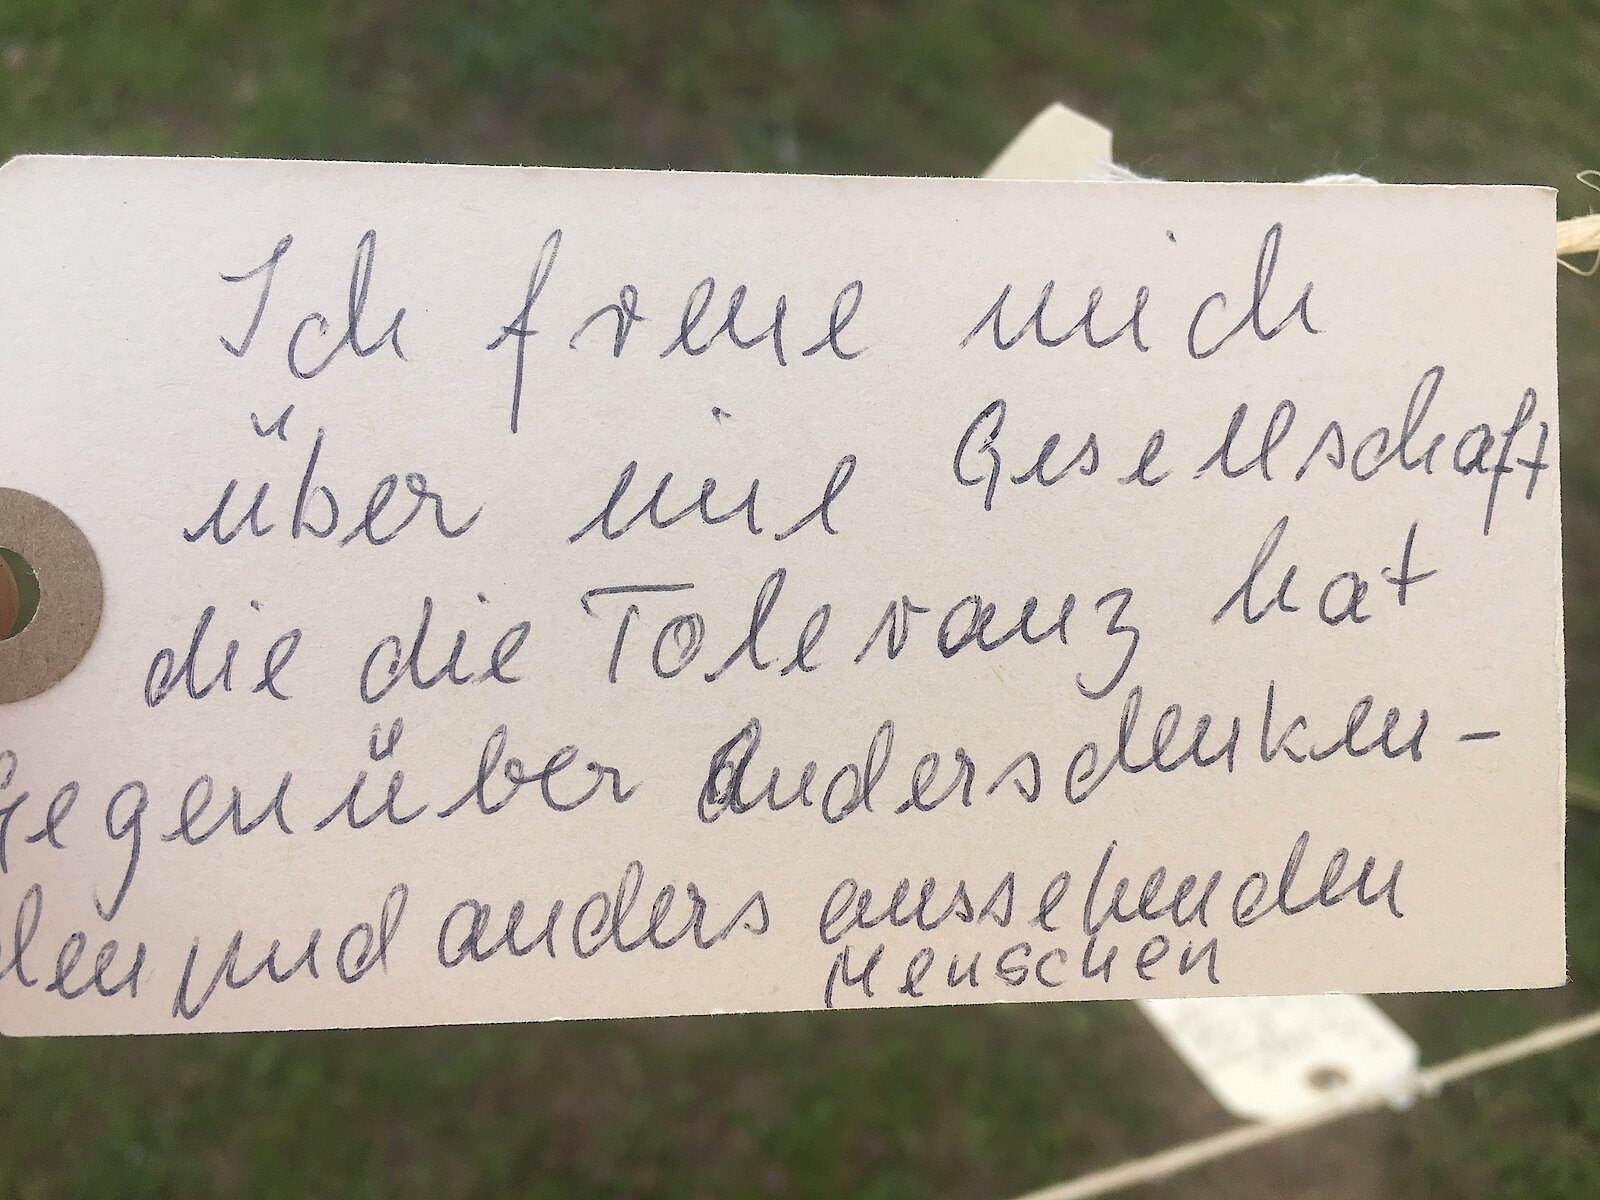 Ich freue mich
über eine Gesellschaft
die die Toleranz hat
Gegenüber Andersdenken-
den und anders aussehenden
Menschen